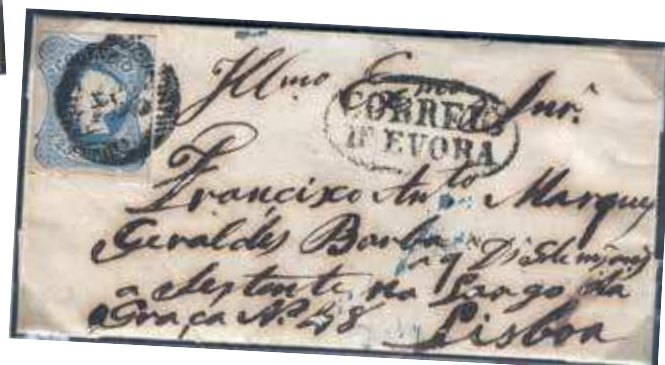 Illmo Exmo Snr.
CORREIO
Dº EVORA
Francisco Anto Marques
Geraldes Barba
a Sextante, no Largo da
Graça Nº 48
Lisboa